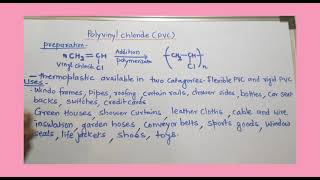 Polyvinyl chloride (PVC)
Preparation
nCH2 = CH Addition (CH2-CH)n
Cl polymerisation Cl
vinyl chloride
thermoplastic available in two categories - flexible PVC and rigid PVC
Uses
Window frames, Pipes, roofing, curtain rails, drawer sides, bottles, Car seat
backs, switches, credit cards
Green Houses, shower Curtains leather Cloths, cable and wire
insulation, garden hoses Conveyor belts, sports goods, window
seals, life jackets, shoes, toys.